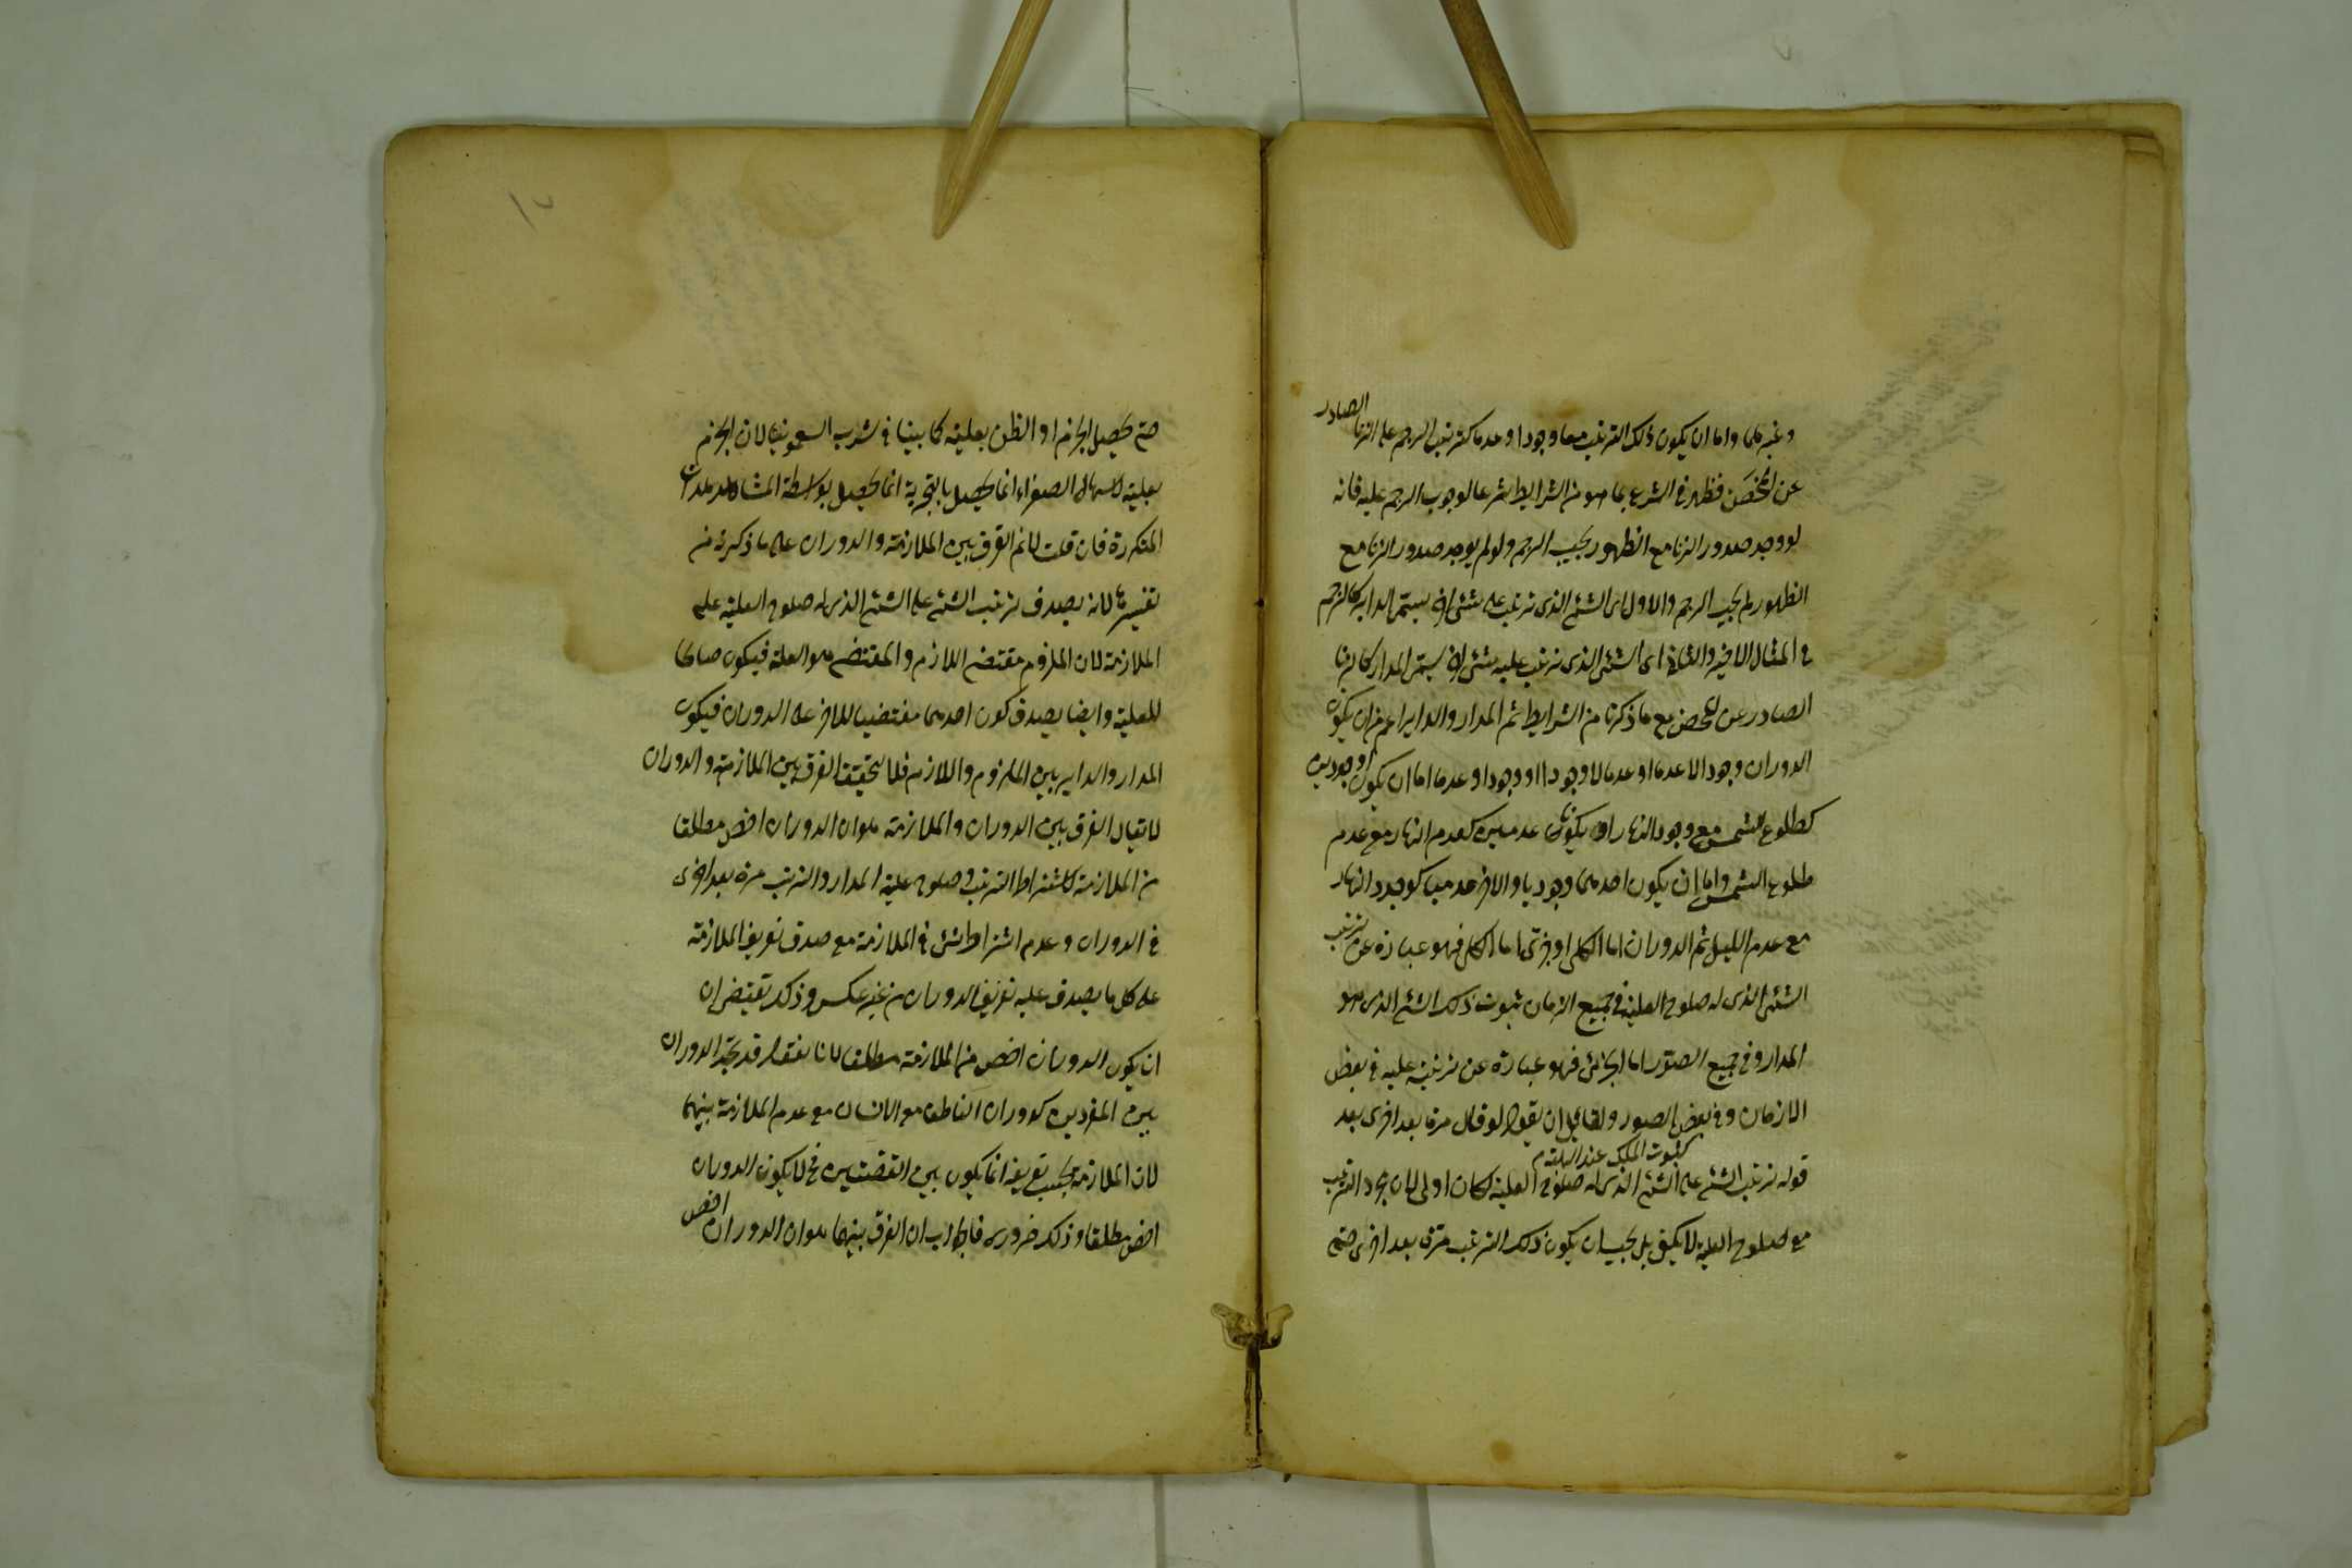 وغيرهما واما ان يكون ذلك الترتب معا وجودا وعدما كترتب الرجم على الزنا الصادر
عن المحصن فظهر في الشرع بما هو من الشرايط شرعا لوجوب الرجم عليه فانه
لو وجد صدور الزنا مع الظهور يجب الرجم ولو لم يوجد صدور الزنا مع
الظهور لم يجب الرجم والاول اى الشئ الذى ترتب على شئ اخر يسمى الداير كالرجم
في المثال الاخير والثاني اى الشئ الذى ترتب عليه شئ اخر يسمى المدار كالزنا
الصادر عن المحصن مع ما ذكرنا من الشرايط ثم المدار والداير اعم من ان يكون
الدوران وجودا لا عدما او عدما لا وجودا او وجودا وعدما اما ان يكون وجوديين
كطلوع الشمس مع وجود النهار او يكونا عدميين كعدم النهار مع عدم
طلوع الشمس واما ان يكون احدهما وجوديا والاخر عدميا كوجود النهار
مع عدم الليل ثم الدوران اما كلى او جزئى اما الكلى فهو عبارة عن ترتب
الشئ الذى له صلوح العلية في جميع الازمان ثبوت ذلك الشئ الذى هو
المدار وفي جميع الصور اما الجزئى فهو عبارة عن ترتبه عليه في بعض
الازمان وفي بعض الصور ولقائل ان يقول لو قال مرة بعد اخرى بعد
كثبوت الملك عند
قوله ترتب الشئ على الشئ الذى له صلوح العلية لكان اولى لان مجرد الترتب
مع صلوح العلية لا يكفى بل يجب ان يكون ذلك الترتب مرة بعد اخرى حتى
حتى يحصل الجزم او الظن بعليته كما بينا في شرب السقمونيا لان الجزم
بعليته لاسهال الصفراء انما يحصل بالتجربة انما يحصل بواسطة المشاهدات
المتكررة فان قلت لا نم الفرق بين الملازمة والدوران على ما ذكرته من
تفسيرهما لانه يصدق ترتب الشئ على الشئ الذى له صلوح العلية على
الملازمة لان الملزوم مقتضى اللازم والمقتضى هو العلة فيكون صالحا
للعلية وايضا يصدق كون احدهما مقتضيا للاخر على الدوران فيكون
المدار والداير بين الملزوم واللازم فلا يتحقق الفرق بين الملازمة والدوران
لا يقال الفرق بين الدوران والملازمة هو ان الدوران اخص مطلقا
من الملازمة لاشتراط الترتب وصلوح علية المدار والترتب مرة بعد اخرى
في الدوران وعدم اشتراط شئ في الملازمة مع صدق تعريف الملازمة
على كل ما يصدق عليه تعريف الدوران من غير عكس وذلك يقتضى ان
ان يكون الدوران اخص من الملازمة مطلقا لانا نقول قد يتحقق الدوران
بين المفردين كدوران الناطق مع الانسان مع عدم الملازمة بينهما
لان الملازمة بحسب تعريفه انما يكون بين القضيتين فح لا يكون الدوران
اخص مطلقا وذلك ضرورى فالجواب ان الفرق بينهما هو ان الدوران اخص